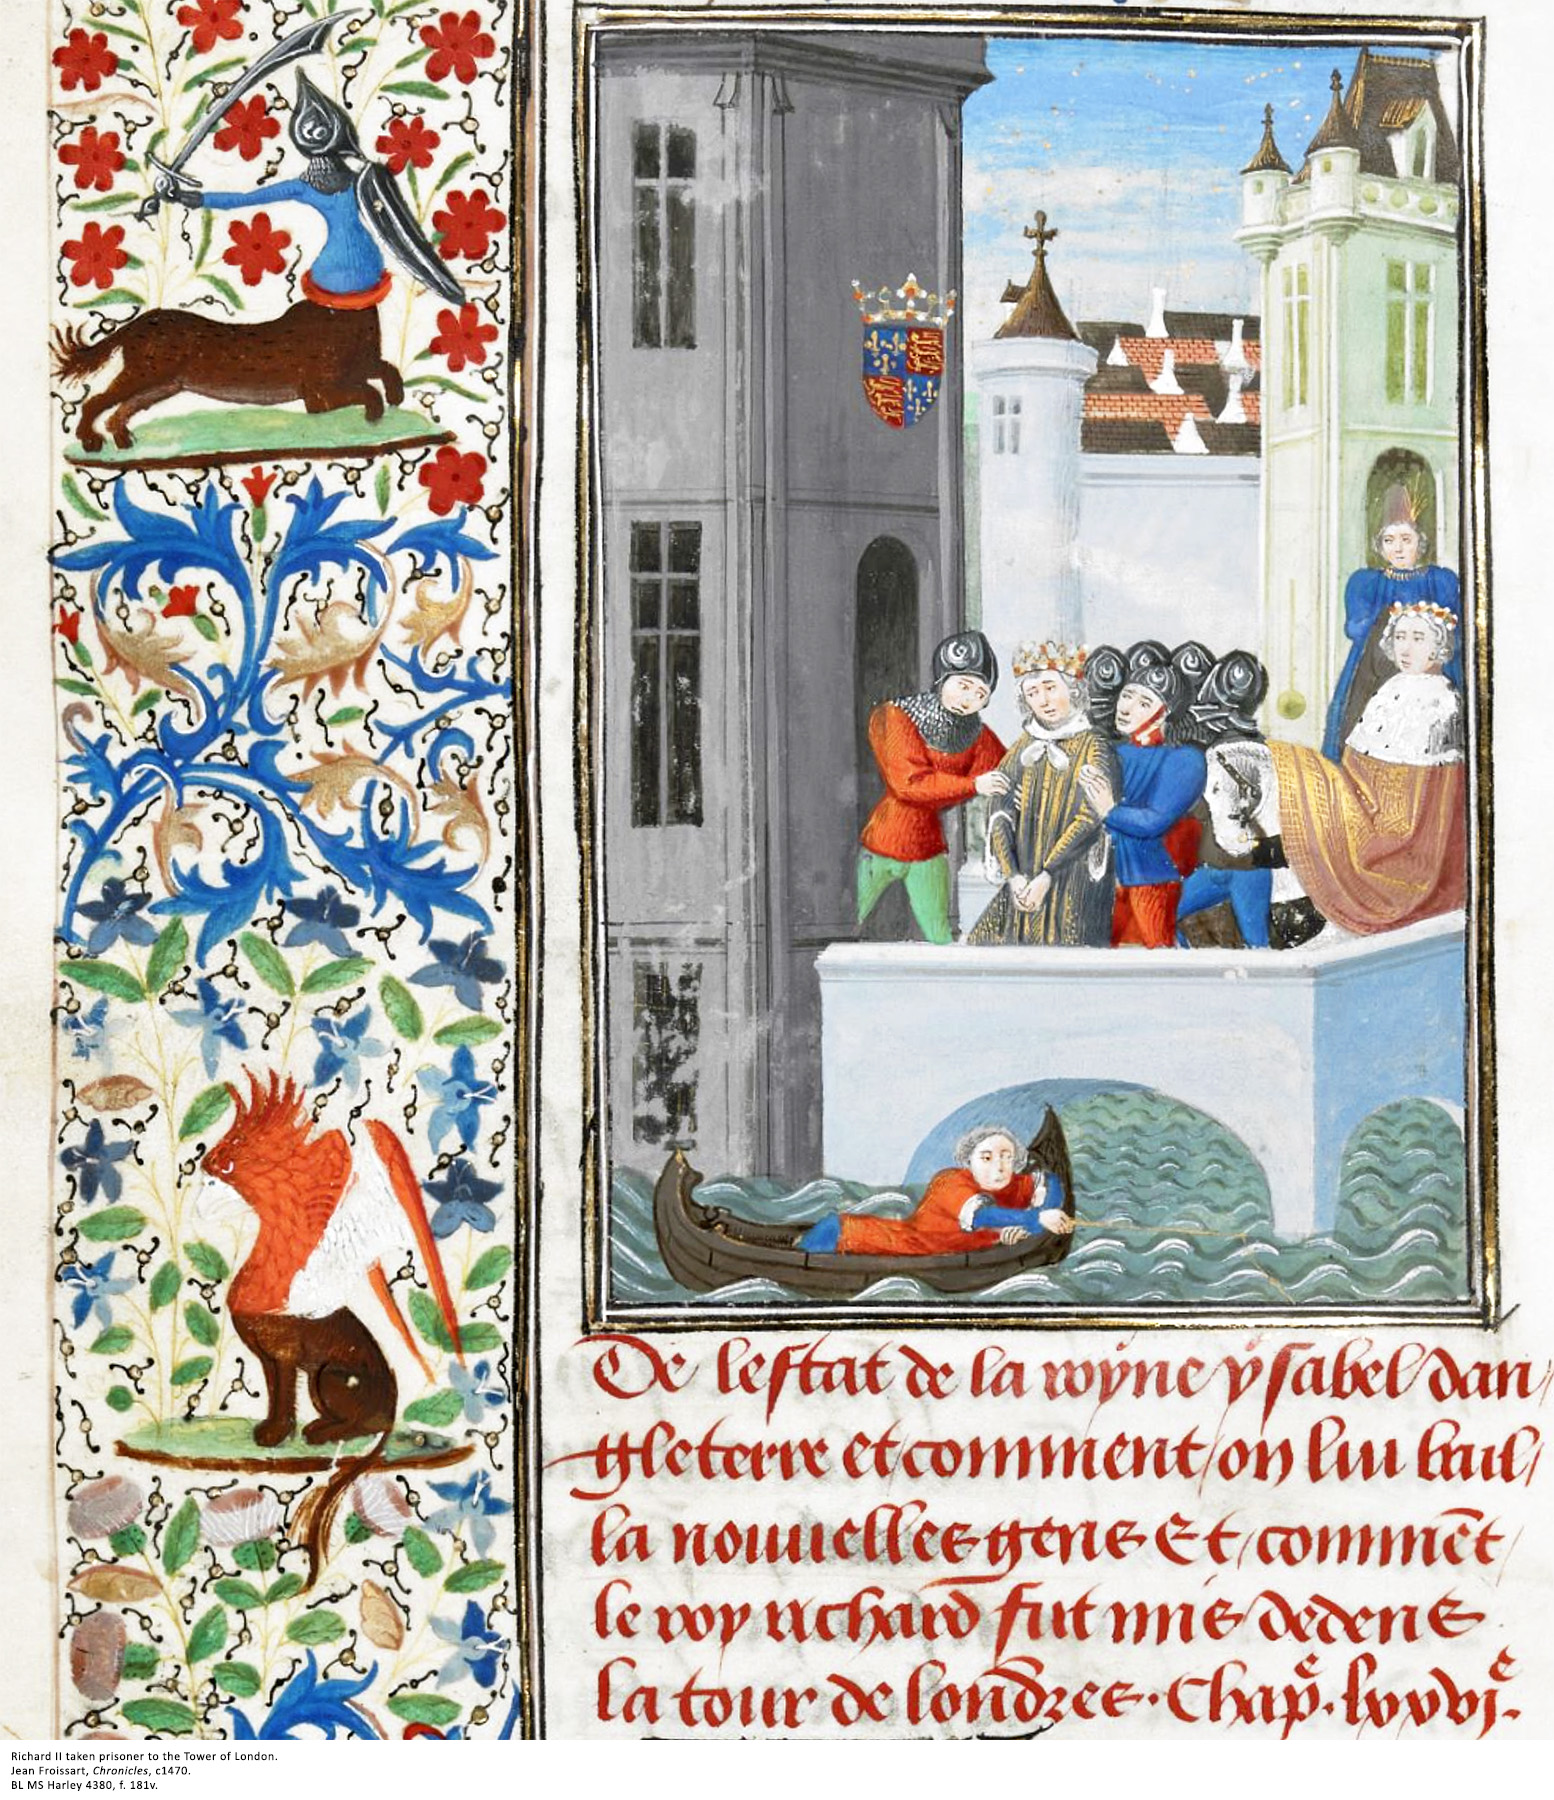 De lestat de la royne ysabel dan
gleterre et comment on lui bail
la nouvelles gens Et comment
le roy richard fut mis dedens
la tour de londres. Chapᵉ. lxxvjᵉ.
Richard II taken prisoner to the Tower of London.
Jean Froissart, Chronicles, c1470.
BL MS Harley 4380, f. 181v.